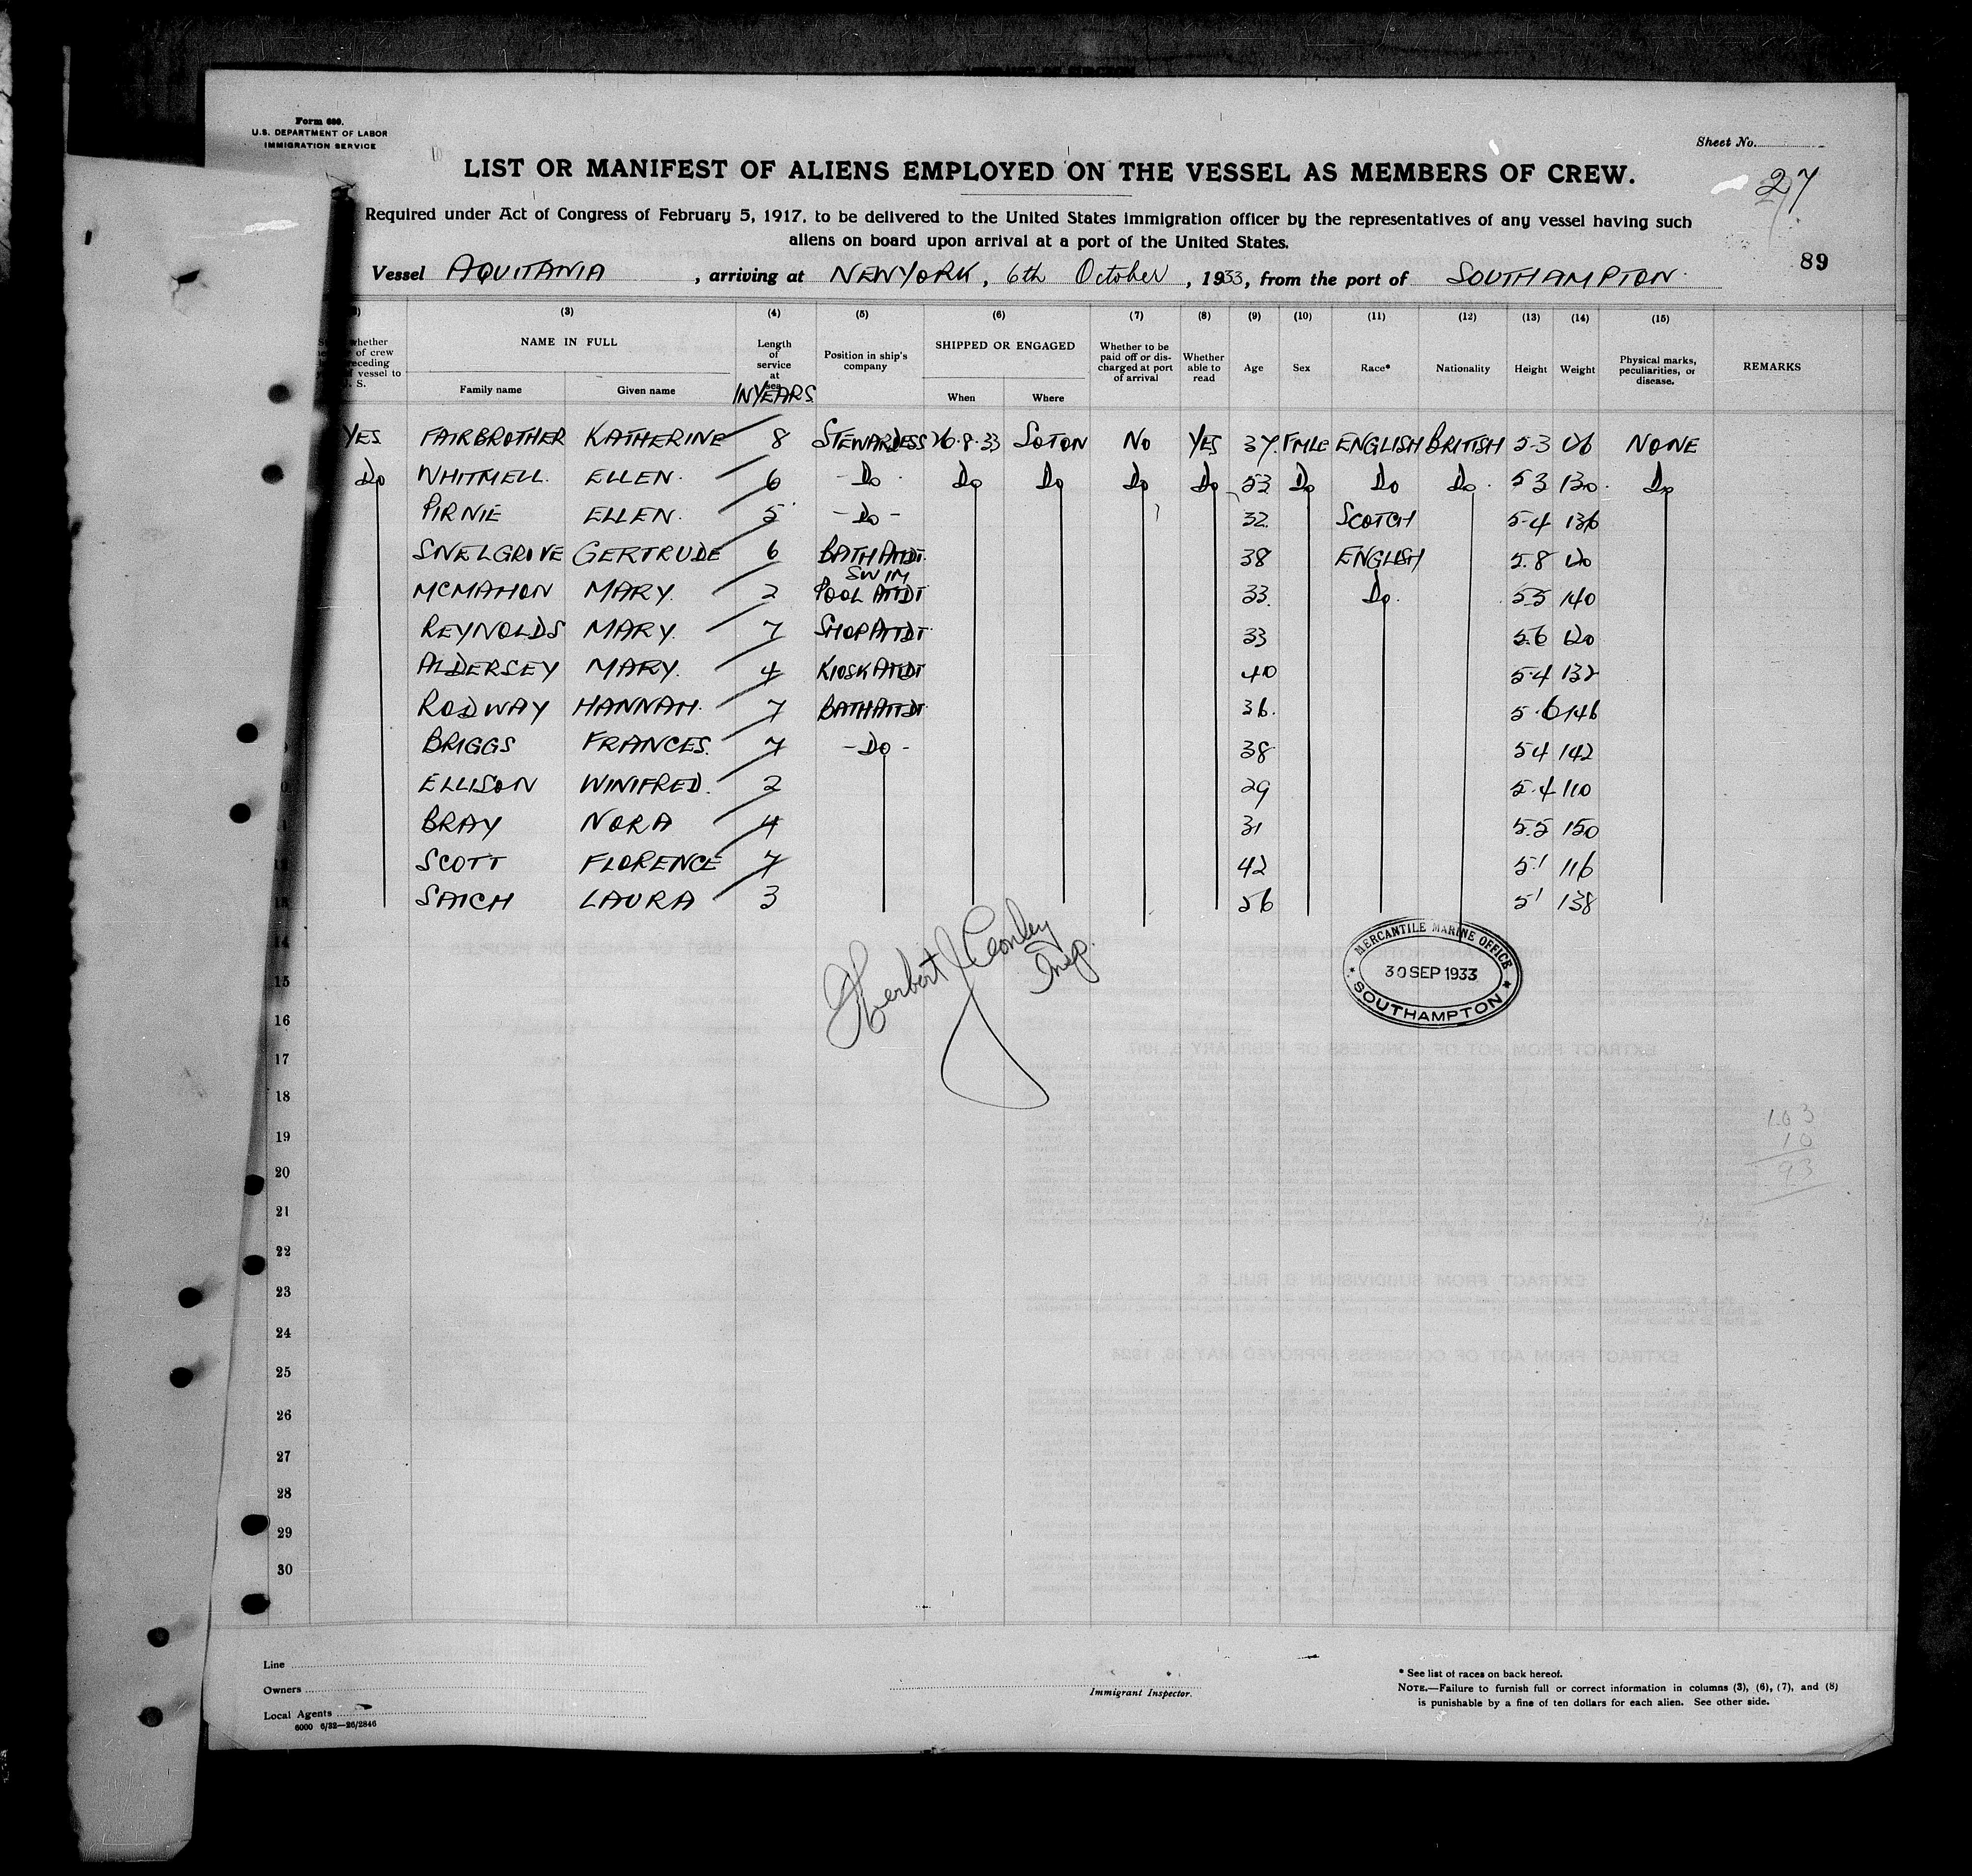 Form 680.
U.S. DEPARTMENT OF LABOR
IMMIGRATION SERVICE
Sheet No.
LIST OR MANIFEST OF ALIENS EMPLOYED ON THE VESSEL AS MEMBERS OF CREW.
27
Required under Act of Congress of February 5, 1917, to be delivered to the United States immigration officer by the representatives of any vessel having such
aliens on board upon arrival at a port of the United States.
89
Vessel AQUITANIA, arriving at NEW YORK, 6th October, 1933, from the port of SOUTHAMPTON
(3) (4) (5) (6) (7) (8) (9) (10) (11) (12) (13) (14) (15)
whether of crew preceding vessel to U. S.
NAME IN FULL
Family name Given name
Length of service at sea
IN YEARS
Position in ship's company
SHIPPED OR ENGAGED
When Where
Whether to be paid off or discharged at port of arrival
Whether able to read
Age Sex Race* Nationality Height Weight
Physical marks, peculiarities, or disease.
REMARKS
YES FAIRBROTHER KATHERINE 8 STEWARDESS 26.8.33 SOTON NO YES 37 FMLE ENGLISH BRITISH 5-3 NONE
Do WHITMELL ELLEN 6 Do Do Do Do Do 53 Do Do Do 53 130 Do
PIRNIE ELLEN 5 -Do- 32 SCOTCH 5-4 136
SNELGROVE GERTRUDE 6 BATH ATTDT 38 ENGLISH 5.8 120
MCMAHON MARY 2 SWIM POOL ATTDT 33 Do 5.5 140
REYNOLDS MARY 7 SHOP ATTDT 33 5.6 120
ALDERSEY MARY 4 KIOSK ATTDT 40 5.4 132
RODWAY HANNAH 7 BATH ATTDT 36 5.6 146
BRIGGS FRANCES 7 -Do- 38 54 142
ELLISON WINIFRED 2 29 5.4 110
BRAY NORA 4 31 5.5 150
SCOTT FLORENCE 7 42 5.1 116
SAICH LAURA 3 56 5' 138
Herbert J Conley
Insp.
MERCANTILE MARINE OFFICE
30 SEP 1933
SOUTHAMPTON
14
15
16
17
18
103
19
10
93
20
21
22
23
24
25
26
27
28
29
30
Line
Owners
Local Agents
6000 6/32—26/2846
Immigrant Inspector.
* See list of races on back hereof.
NOTE.—Failure to furnish full or correct information in columns (3), (6), (7), and (8)
is punishable by a fine of ten dollars for each alien. See other side.